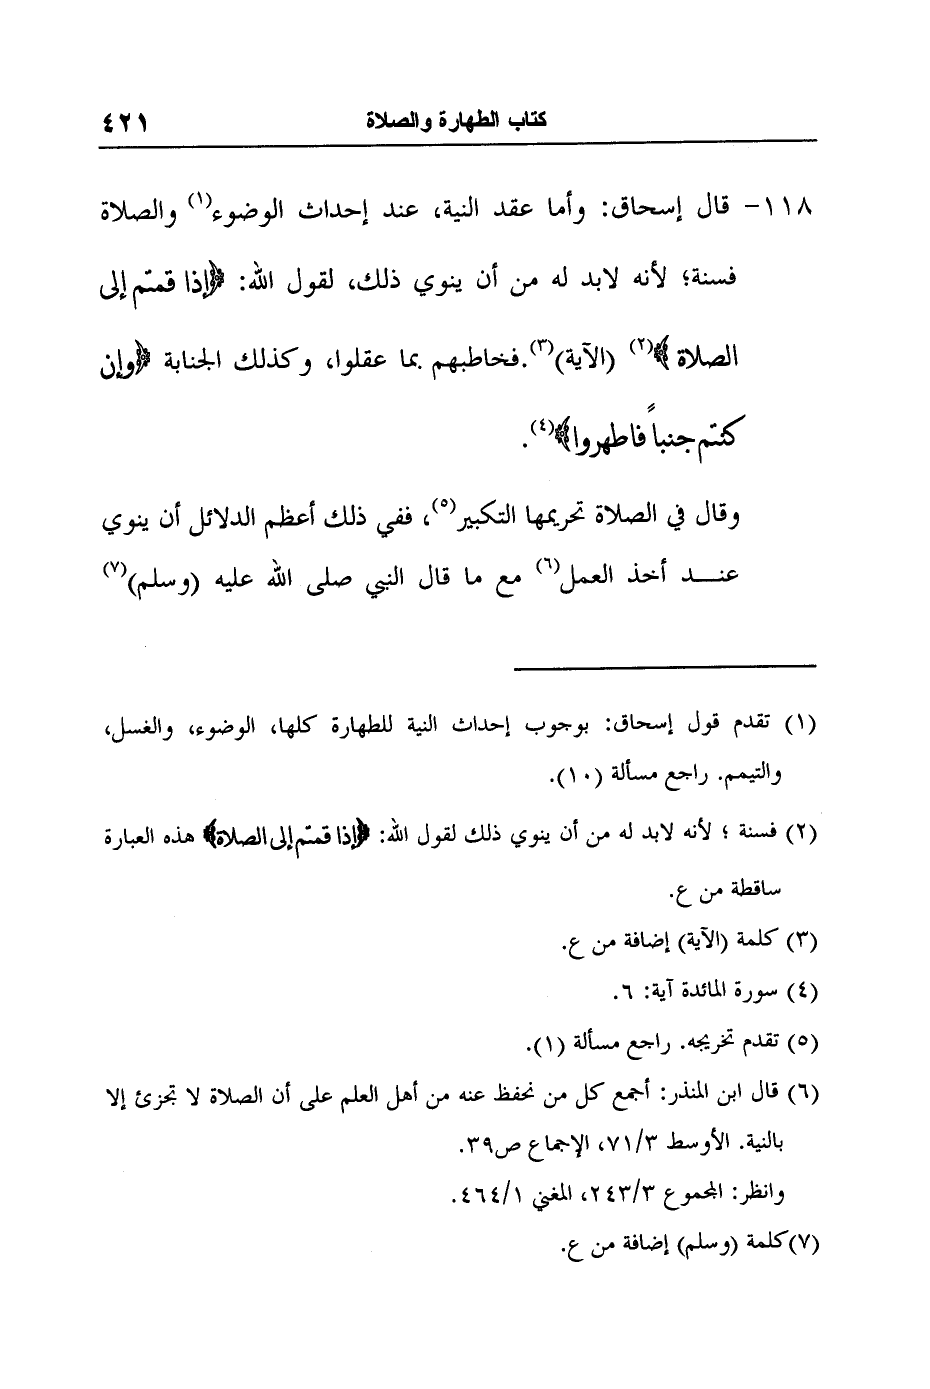 كتاب الطهارة والصلاة ٤٢١
١١٨- قال إسحاق: وأما عقد النية، عند إحداث الوضوء(١) والصلاة
فسنة؛ لأنه لابد له من أن ينوي ذلك، لقول الله: ﴿إذا قمتم إلى
الصلاة﴾(٢) (الآية)(٣).فخاطبهم بما عقلوا، وكذلك الجنابة ﴿وإن
كنتم جنباً فاطهروا﴾(٤).
وقال في الصلاة تحريمها التكبير(٥)، ففي ذلك أعظم الدلائل أن ينوي
عنــد أخذ العمل(٦) مع ما قال النبي صلى الله عليه (وسلم)(٧)
(١) تقدم قول إسحاق: بوجوب إحداث النية للطهارة كلها، الوضوء، والغسل،
والتيمم. راجع مسألة (١٠).
(٢) فسنة ؛ لأنه لابد له من أن ينوي ذلك لقول الله: ﴿إذا قمتم إلى الصلاة﴾ هذه العبارة
ساقطة من ع.
(٣) كلمة (الآية) إضافة من ع.
(٤) سورة المائدة آية: ٦.
(٥) تقدم تخريجه. راجع مسألة (١).
(٦) قال ابن المنذر: أجمع كل من نحفظ عنه من أهل العلم على أن الصلاة لا تجزئ إلا
بالنية. الأوسط ٧١/٣، الإجماع ص٣٩.
وانظر: المجموع ٢٤٣/٣، المغني ٤٦٤/١.
(٧)كلمة (وسلم) إضافة من ع.